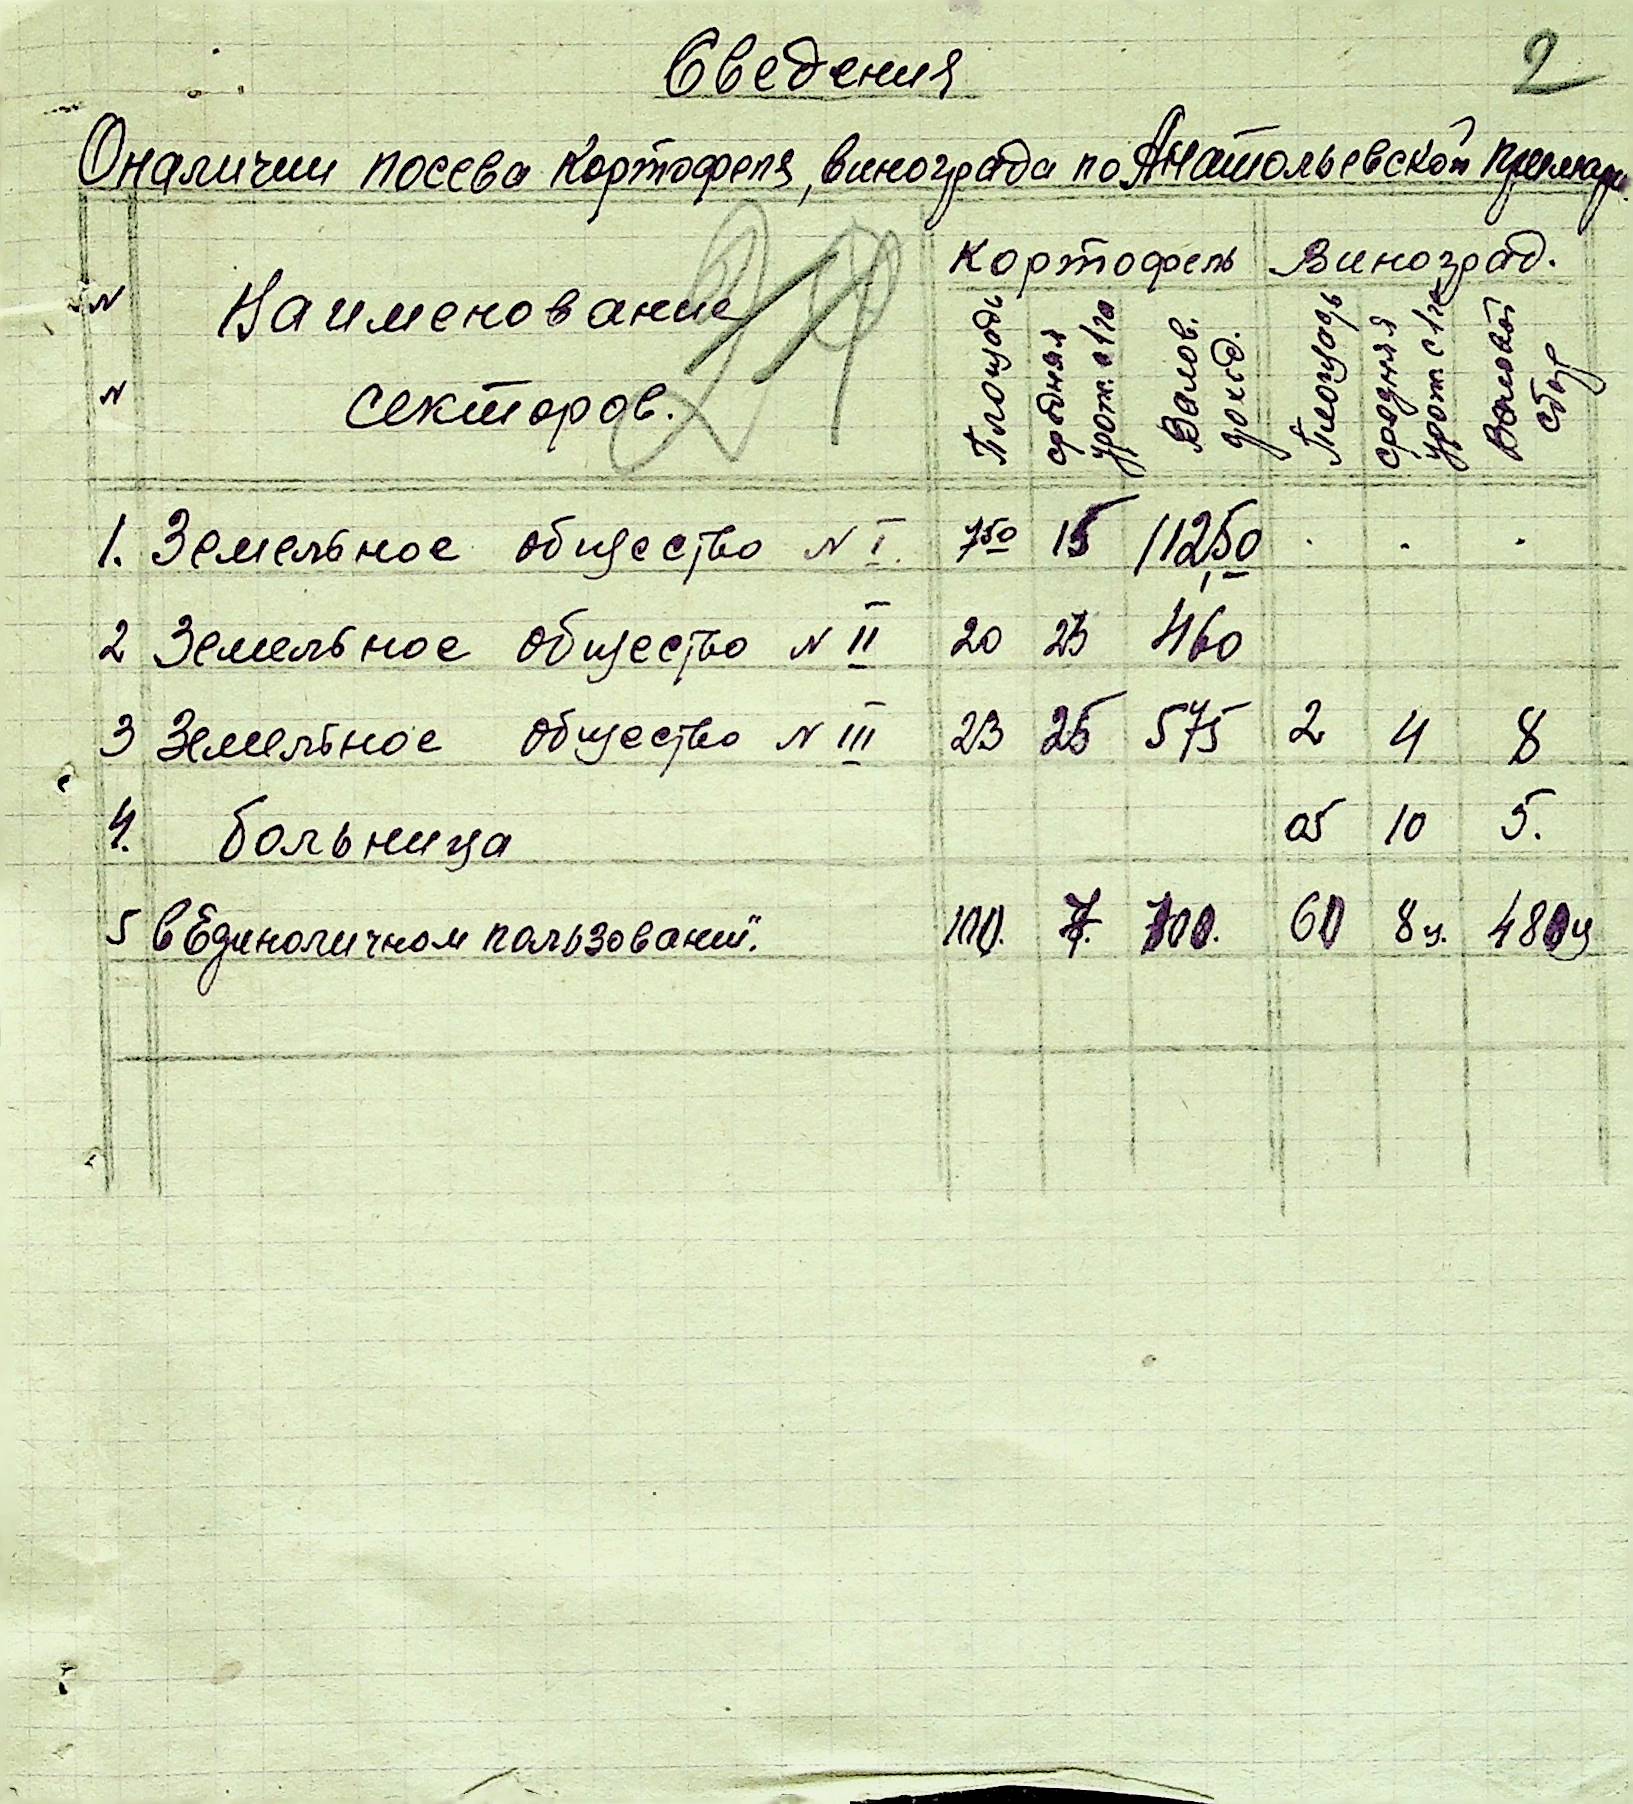 2
Сведения
О наличии посева Кортофеля, винограда по Анатольевской примари
N N Наименование секторов. Кортофель Виноград.
Площадь средняя урож. с 1 га Валов. доход. Площадь средняя урож с 1 га Валовой сбор
1. Земельное общество N I. 7 50 15 112,50 . . .
2 Земельное общество N II 20 23 460
3 Земельное общество N III 23 25 575 2 4 8
4. больница 05 10 5.
5 в Единоличном пользовании. 100. 7. 700. 60 8 ц. 480 ц